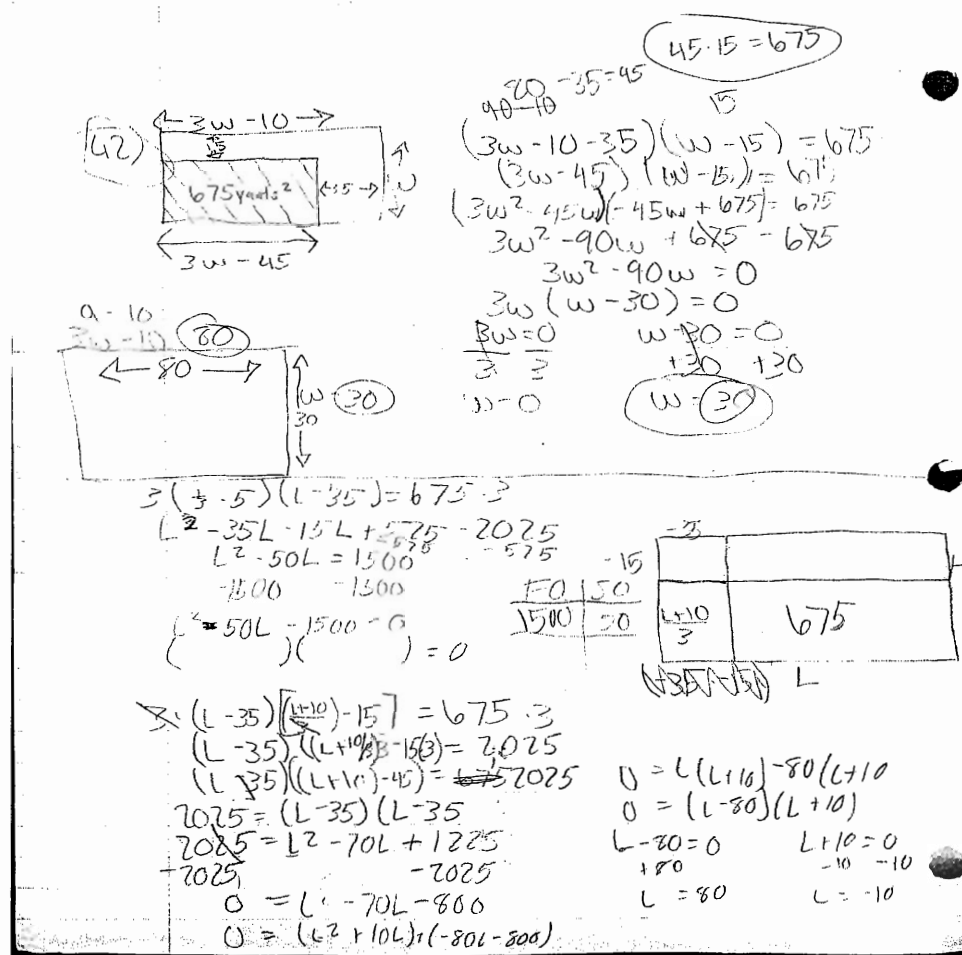 45·15 = 675
80 - 35 = 45
90-10
15
42)
3w - 10
15
675 yards²
35
w
3w - 45
(3w - 10 - 35)(w - 15) = 675
(3w - 45)(w - 15) = 675
(3w² - 45w)(-45w + 675) = 675
3w² - 90w + 675 - 675
3w² - 90w = 0
3w(w - 30) = 0
3w = 0 w - 30 = 0
3 3 +30 +30
w = 0 w = 30
3w - 10 80
80
w = 30
30
L² - 35L - 15L + 525 - 2025
L² - 50L = 1500
-1500 -1500
L² - 50L - 1500 = 0
( )( ) = 0
50
1500 | 50
-15
L+10
3
675
L
3·(L - 35)[(L+10/3) - 15] = 675·3
(L - 35)((L+10/3)3 - 15(3) = 2025
(L - 35)((L+10) - 45) = 675 2025
2025 = (L - 35)(L - 35
2025 = L² - 70L + 1225
-2025 -2025
0 = L² - 70L - 800
0 = (L² + 10L)+(-80L - 800)
0 = L(L+10) - 80(L+10
0 = (L - 80)(L + 10)
L - 80 = 0 L + 10 = 0
+80 -10 -10
L = 80 L = -10